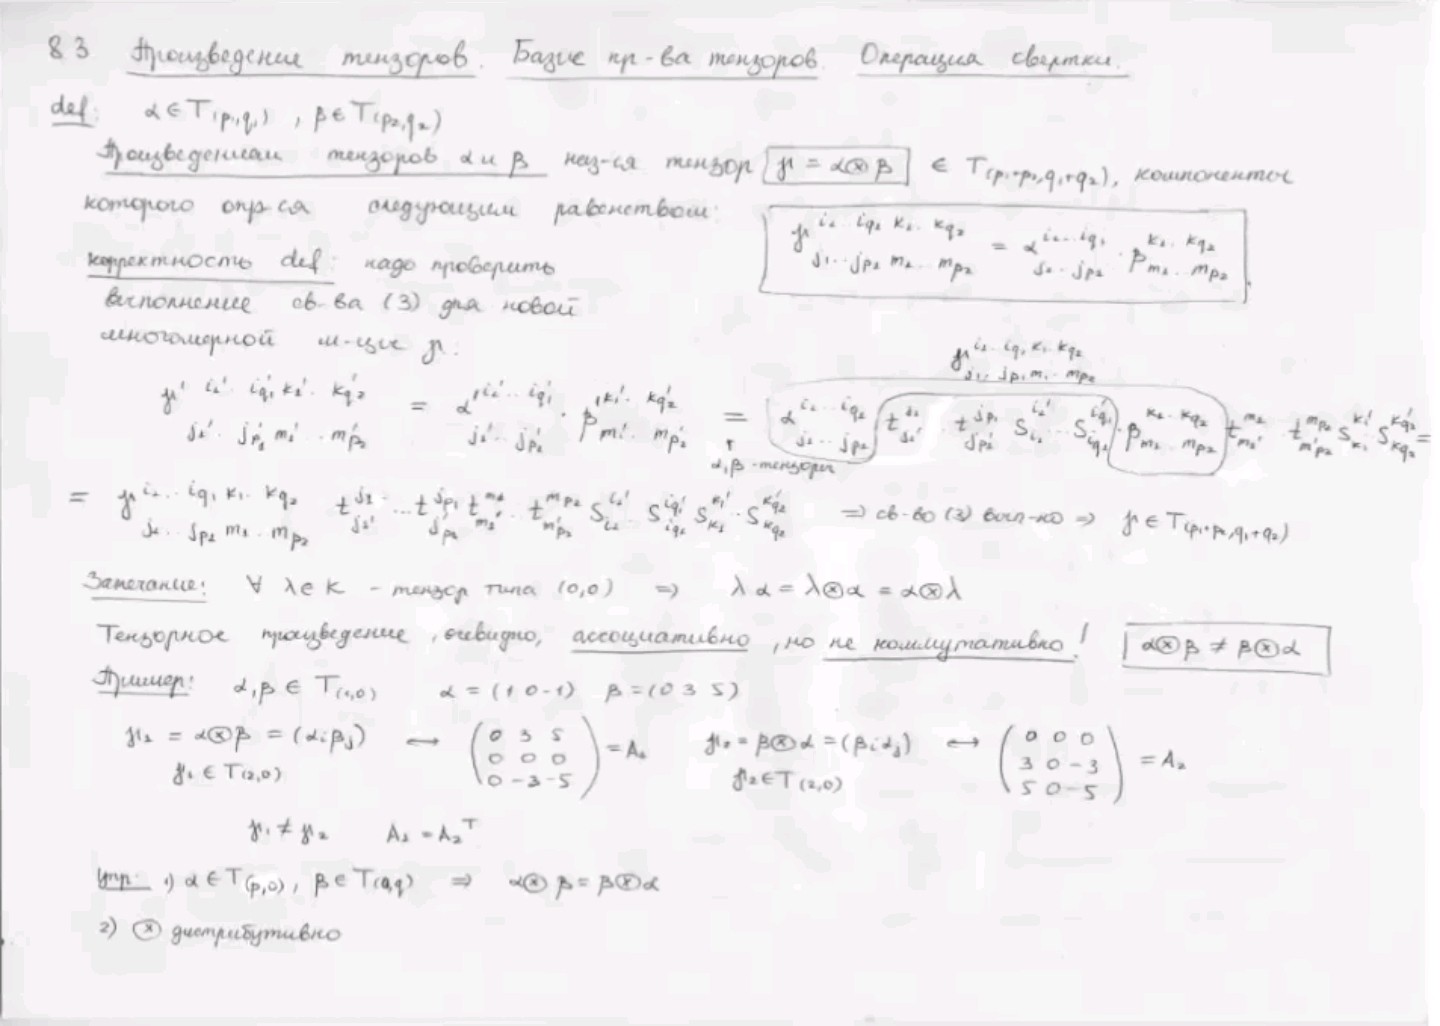 8 3 Произведение тензоров. Базис пр-ва тензоров. Операция свертки.
def: α ∈ T(p₁,q₁) , β ∈ T(p₂,q₂)
Произведением тензоров α и β наз-ся тензор γ = α⊗β ∈ T(p₁+p₂,q₁+q₂), компоненты
которого опр-ся следующим равенством:
γ^{i₁..iq₁ k₁..kq₂}_{j₁..jp₁ m₁..mp₂} = α^{i₁...iq₁}_{j₁..jp₁} · β^{k₁..kq₂}_{m₁..mp₂}
корректность def: надо проверить
выполнение св-ва (3) для новой
многомерной м-цы γ:
γ^{i₁..iq₁ k₁..kq₂}_{j₁..jp₁ m₁..mp₂}
γ'^{i₁'..iq₁' k₁'..kq₂'}_{j₁'..jp₁' m₁'..mp₂'} = α'^{i₁'..iq₁'}_{j₁'..jp₁'} · β'^{k₁'..kq₂'}_{m₁'..mp₂'} = α^{i₁...iq₁}_{j₁..jp₁} t^{j₁}_{j₁'} .. t^{jp₁}_{jp₁'} S^{i₁'}_{i₁} ... S^{iq₁'}_{iq₁} · β^{k₁..kq₂}_{m₁..mp₂} t^{m₁}_{m₁'} .. t^{mp₂}_{mp₂'} S^{k₁'}_{k₁} S^{kq₂'}_{kq₂} =
↑
α,β - тензоры
= γ^{i₁..iq₁ k₁..kq₂}_{j₁..jp₁ m₁..mp₂} t^{j₁}_{j₁'} ... t^{jp₁}_{jp₁'} t^{m₁}_{m₁'} .. t^{mp₂}_{mp₂'} S^{i₁'}_{i₁} .. S^{iq₁'}_{iq₁} S^{k₁'}_{k₁} .. S^{kq₂'}_{kq₂} ⇒ св-во (3) вып-но ⇒ γ ∈ T(p₁+p₂,q₁+q₂)
Замечание: ∀ λ ∈ K - тензор типа (0,0) ⇒ λα = λ⊗α = α⊗λ
Тензорное произведение, очевидно, ассоциативно, но не коммутативно! α⊗β ≠ β⊗α
Пример: α,β ∈ T(1,0) α = (1 0 -1) β = (0 3 5)
γ₁ = α⊗β = (αᵢβⱼ) ↔ (0 3 5 / 0 0 0 / 0 -3 -5) = A₁ γ₂ = β⊗α = (βᵢαⱼ) ↔ (0 0 0 / 3 0 -3 / 5 0 -5) = A₂
γ₁ ∈ T(2,0) γ₂ ∈ T(2,0)
γ₁ ≠ γ₂ A₁ = A₂ᵀ
Упр: 1) α ∈ T(p,0), β ∈ T(0,q) ⇒ α⊗β = β⊗α
2) ⊗ дистрибутивно